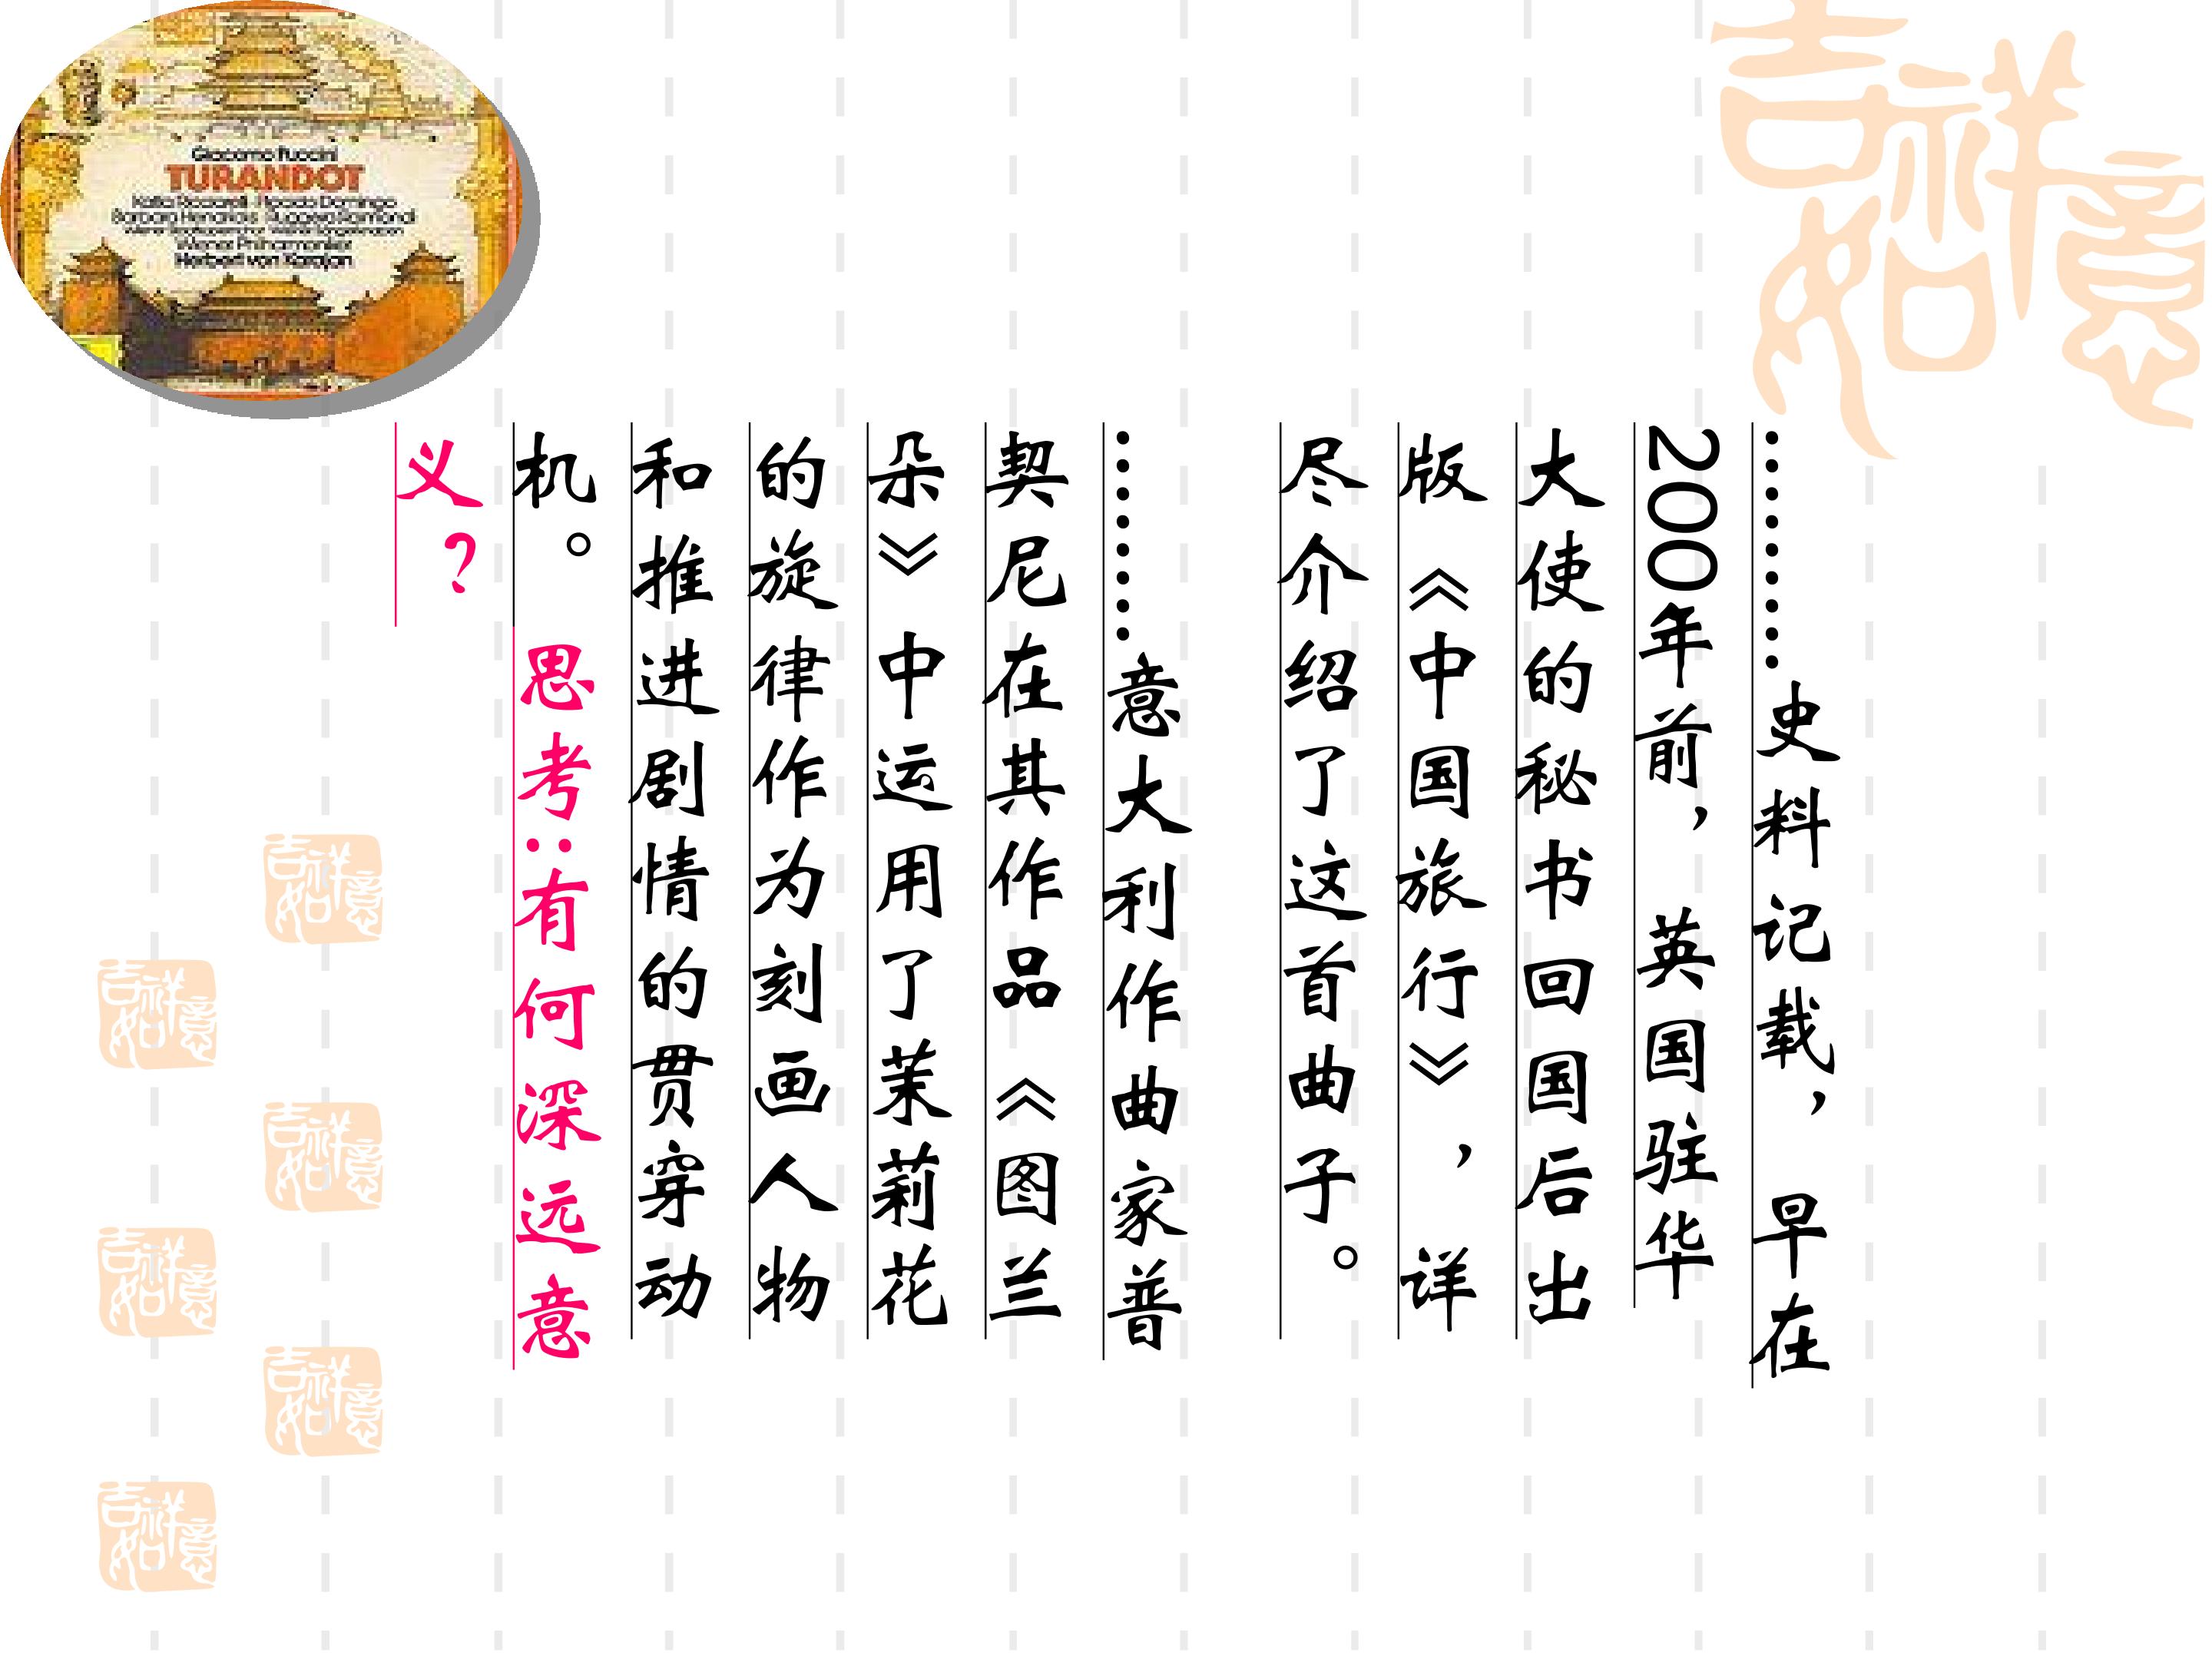 ………史料记载，早在
200年前，英国驻华
大使的秘书回国后出
版《中国旅行》，详
尽介绍了这首曲子。
………意大利作曲家普
契尼在其作品《图兰
朵》中运用了茉莉花
的旋律作为刻画人物
和推进剧情的贯穿动
机。思考:有何深远意
义？
Giacomo Puccini
TURANDOT
Katia Ricciarelli · Placido Domingo
Barbara Hendricks · Ruggero Raimondi
Wiener Philharmoniker
Herbert von Karajan
吉祥如意
吉祥如意
吉祥如意
吉祥如意
吉祥如意
吉祥如意
吉祥如意